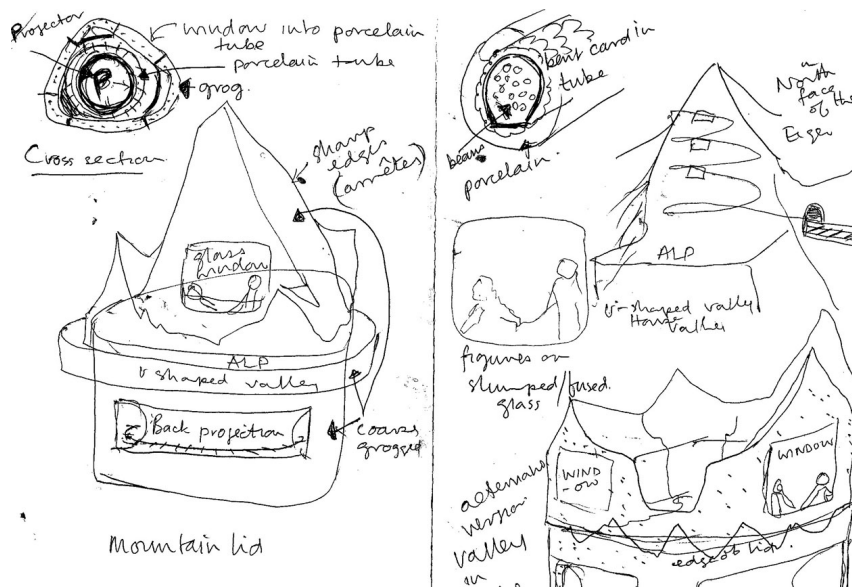 Projector
window into porcelain
tube
porcelain tube
P
grog.
Cross section
sharp
edges
(arrêtes)
glass
window
ALP
U shaped valley
Back projection
coarse
Mountain lid
bent card in
tube
beans
porcelain.
North
face
of the
Eiger
ALP
U-shaped valley
figures on
slumped/fused.
glass
WIND
-OW
WINDOW
version
valley
in
edge of lid